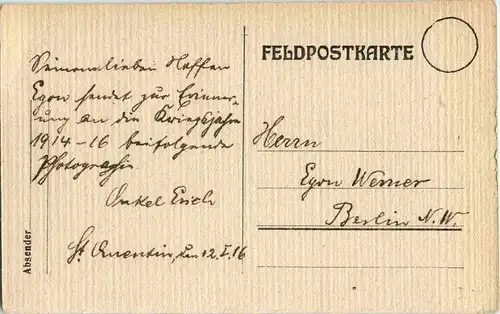 Seinem lieben Neffen
Egon sendet zur Erinner-
ung an die Kriegsjahre
1914-16 beifolgende
Photographie
Onkel Erich
St. Quentin, den 12.I.16
Absender
FELDPOSTKARTE
Herrn
Egon Werner
Berlin N.W.